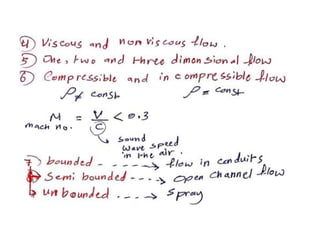 4) Viscous and nonviscous flow.
5) One, two and three dimensional flow
6) Compressible and incompressible flow
ρ ≠ const ρ = const
M = V/C < 0.3
mach no.
sound
wave speed
in the air.
7) bounded ----→ flow in conduits
semi bounded ---→ open channel flow
unbounded ----→ spray